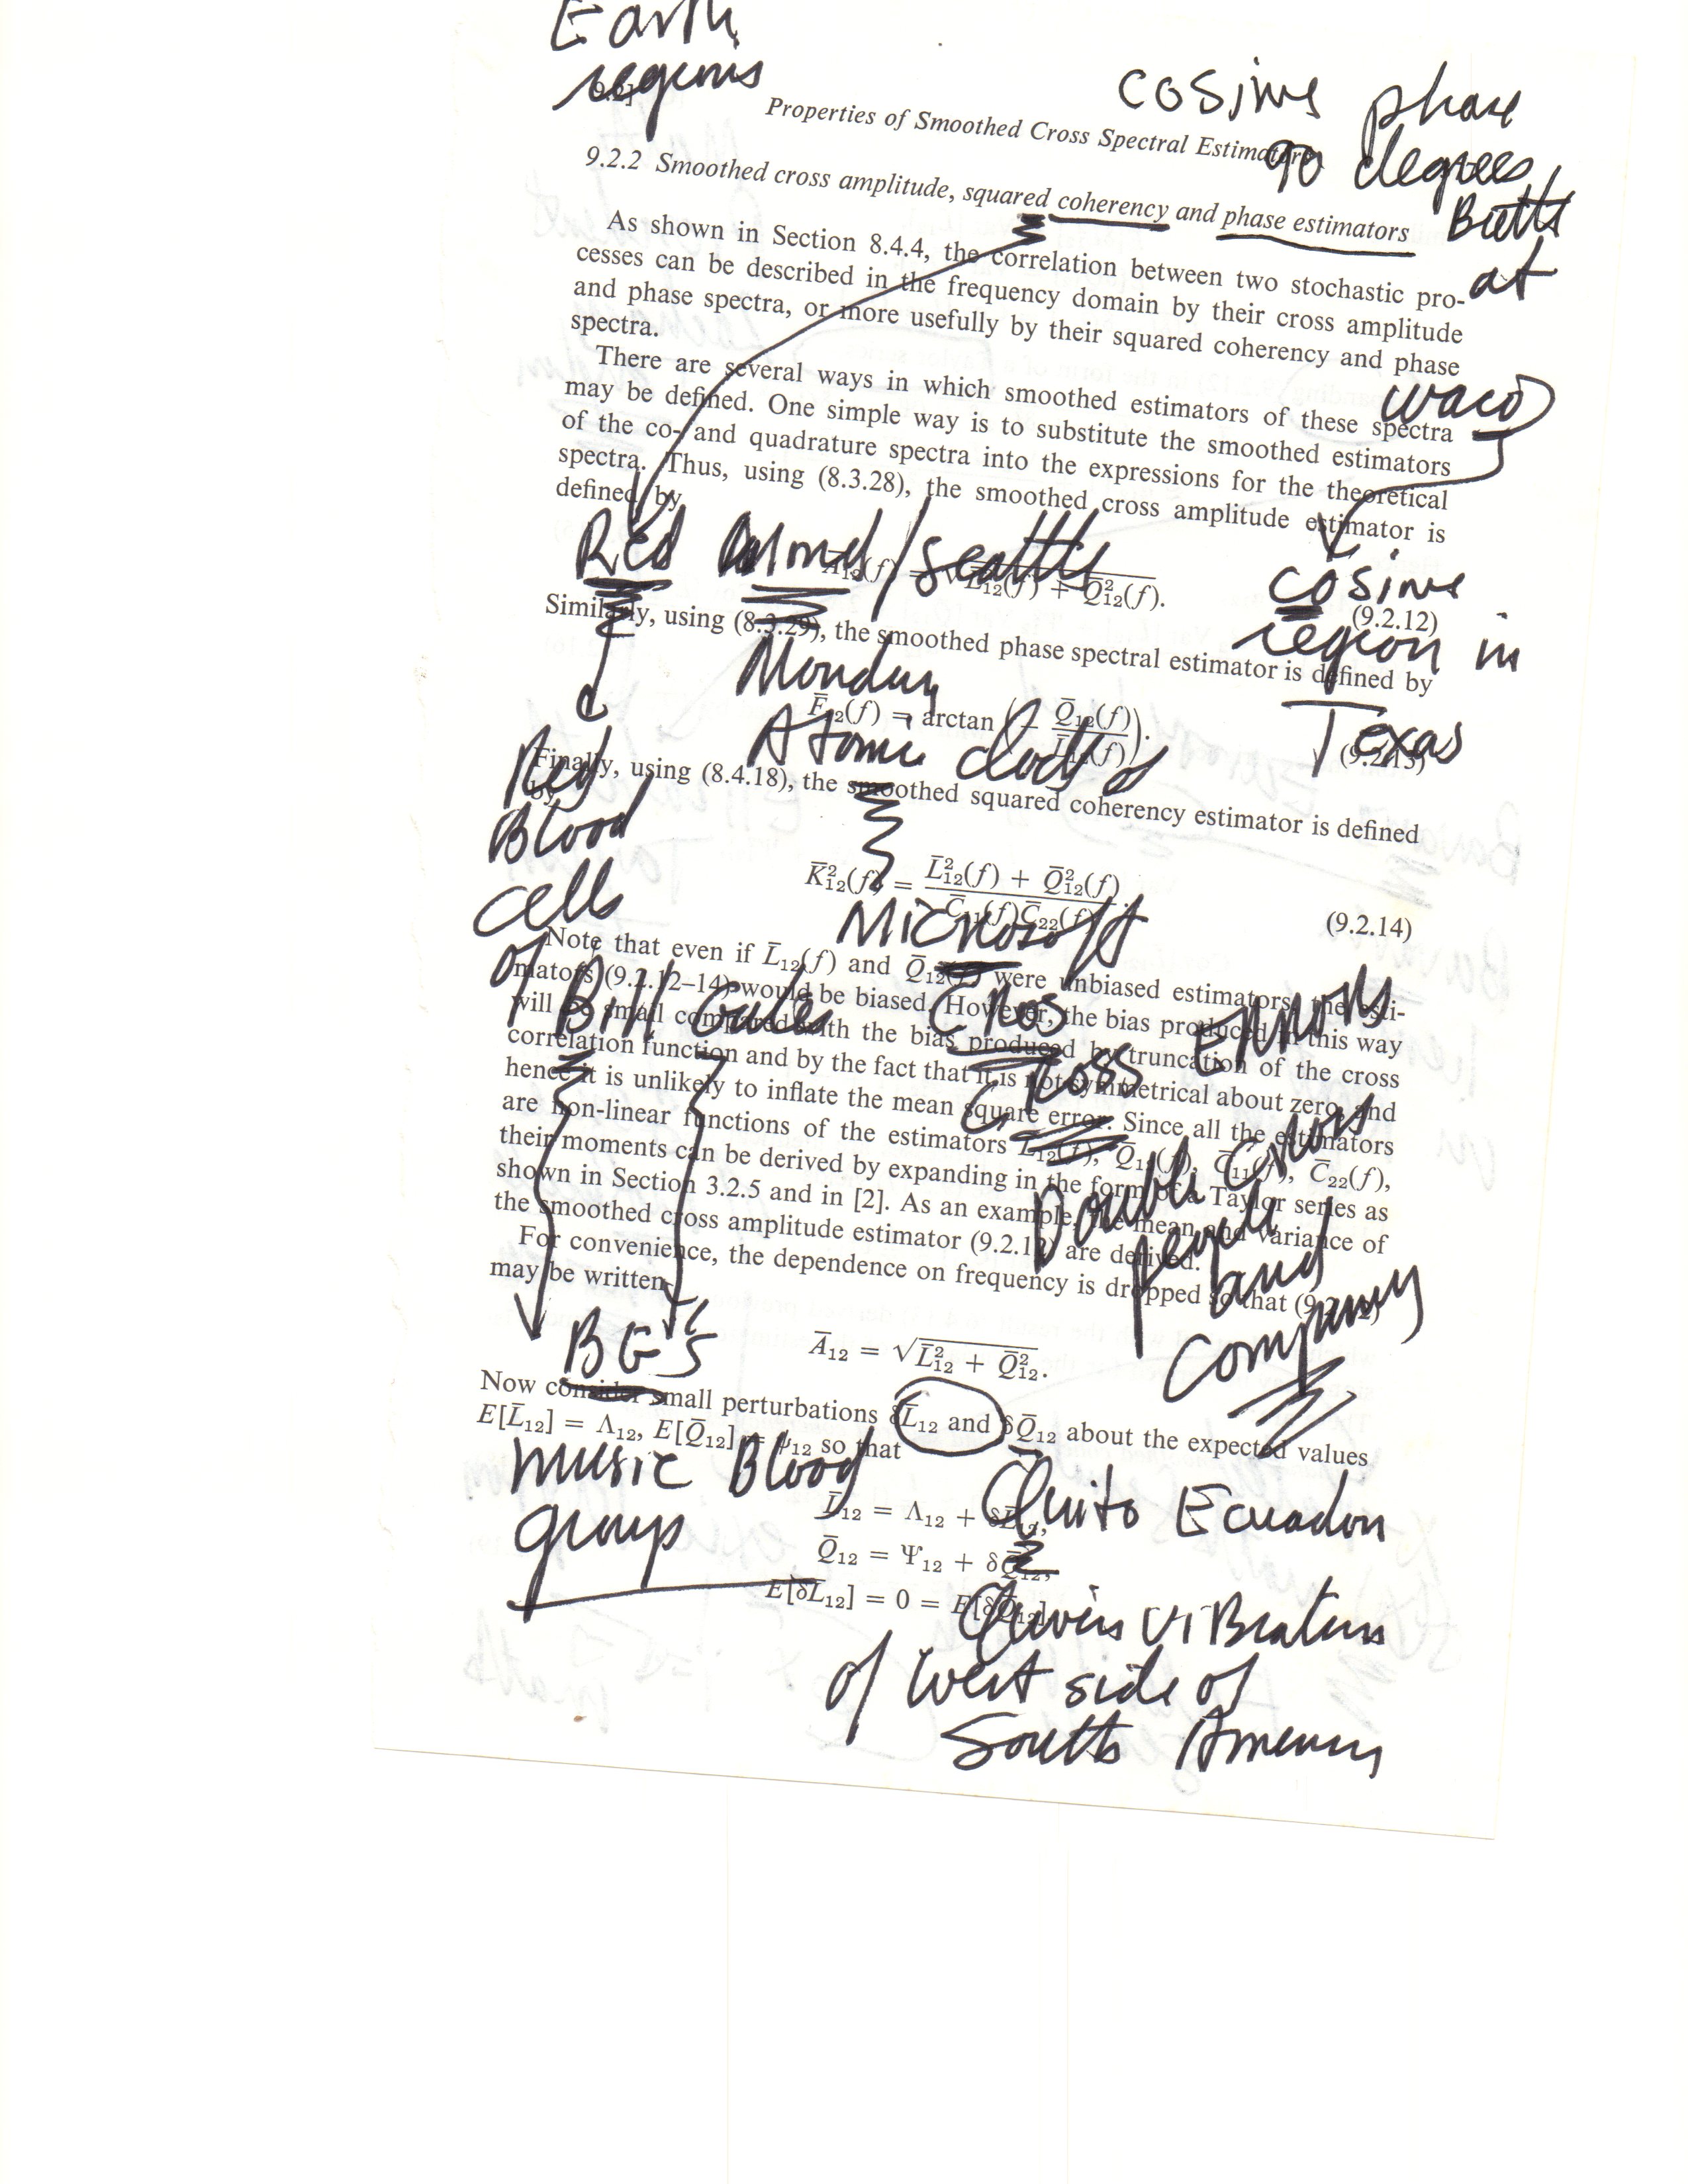 Earth
regions
9.2]
cosine phase
Properties of Smoothed Cross Spectral Estimators
90 degrees
9.2.2 Smoothed cross amplitude, squared coherency and phase estimators
Births
at
As shown in Section 8.4.4, the correlation between two stochastic pro-
cesses can be described in the frequency domain by their cross amplitude
and phase spectra, or more usefully by their squared coherency and phase
spectra.
waco
There are several ways in which smoothed estimators of these spectra
may be defined. One simple way is to substitute the smoothed estimators
of the co- and quadrature spectra into the expressions for the theoretical
spectra. Thus, using (8.3.28), the smoothed cross amplitude estimator is
defined by
Red /Seattle
cosine
region in
Texas
Ā₁₂(f) = √L̄²₁₂(f) + Q̄²₁₂(f). (9.2.12)
Similarly, using (8.3.29), the smoothed phase spectral estimator is defined by
Monday
Atomic clock of
F̄₁₂(f) = arctan (− Q̄₁₂(f) / L̄₁₂(f)). (9.2.13)
Finally, using (8.4.18), the smoothed squared coherency estimator is defined
by
Red
Blood
cells
of Bill Gates
K̄²₁₂(f) = L̄²₁₂(f) + Q̄²₁₂(f) / C̄₁₁(f)C̄₂₂(f). (9.2.14)
Microsoft
Note that even if L̄₁₂(f) and Q̄₁₂(f) were unbiased estimators, the esti-
mators (9.2.12–14) would be biased. However, the bias produced in this way
will be small compared with the bias produced by truncation of the cross
correlation function and by the fact that it is not symmetrical about zero, and
hence it is unlikely to inflate the mean square error. Since all the estimators
are non-linear functions of the estimators L̄₁₂(f), Q̄₁₂(f), C̄₁₁(f), C̄₂₂(f),
their moments can be derived by expanding in the form of a Taylor series as
shown in Section 3.2.5 and in [2]. As an example, the mean and variance of
the smoothed cross amplitude estimator (9.2.12) are derived.
Cross
Double
people
and
Company
For convenience, the dependence on frequency is dropped so that (9.2.12)
may be written
BG's
Ā₁₂ = √L̄²₁₂ + Q̄²₁₂.
Now consider small perturbations δL̄₁₂ and δQ̄₁₂ about the expected values
E[L̄₁₂] = Λ₁₂, E[Q̄₁₂] = Ψ₁₂ so that
music Blood
group
L̄₁₂ = Λ₁₂ + δL̄₁₂,
Quito Ecuador
Q̄₁₂ = Ψ₁₂ + δQ̄₁₂,
E[δL̄₁₂] = 0 = E[δQ̄₁₂]
of West side of
South America